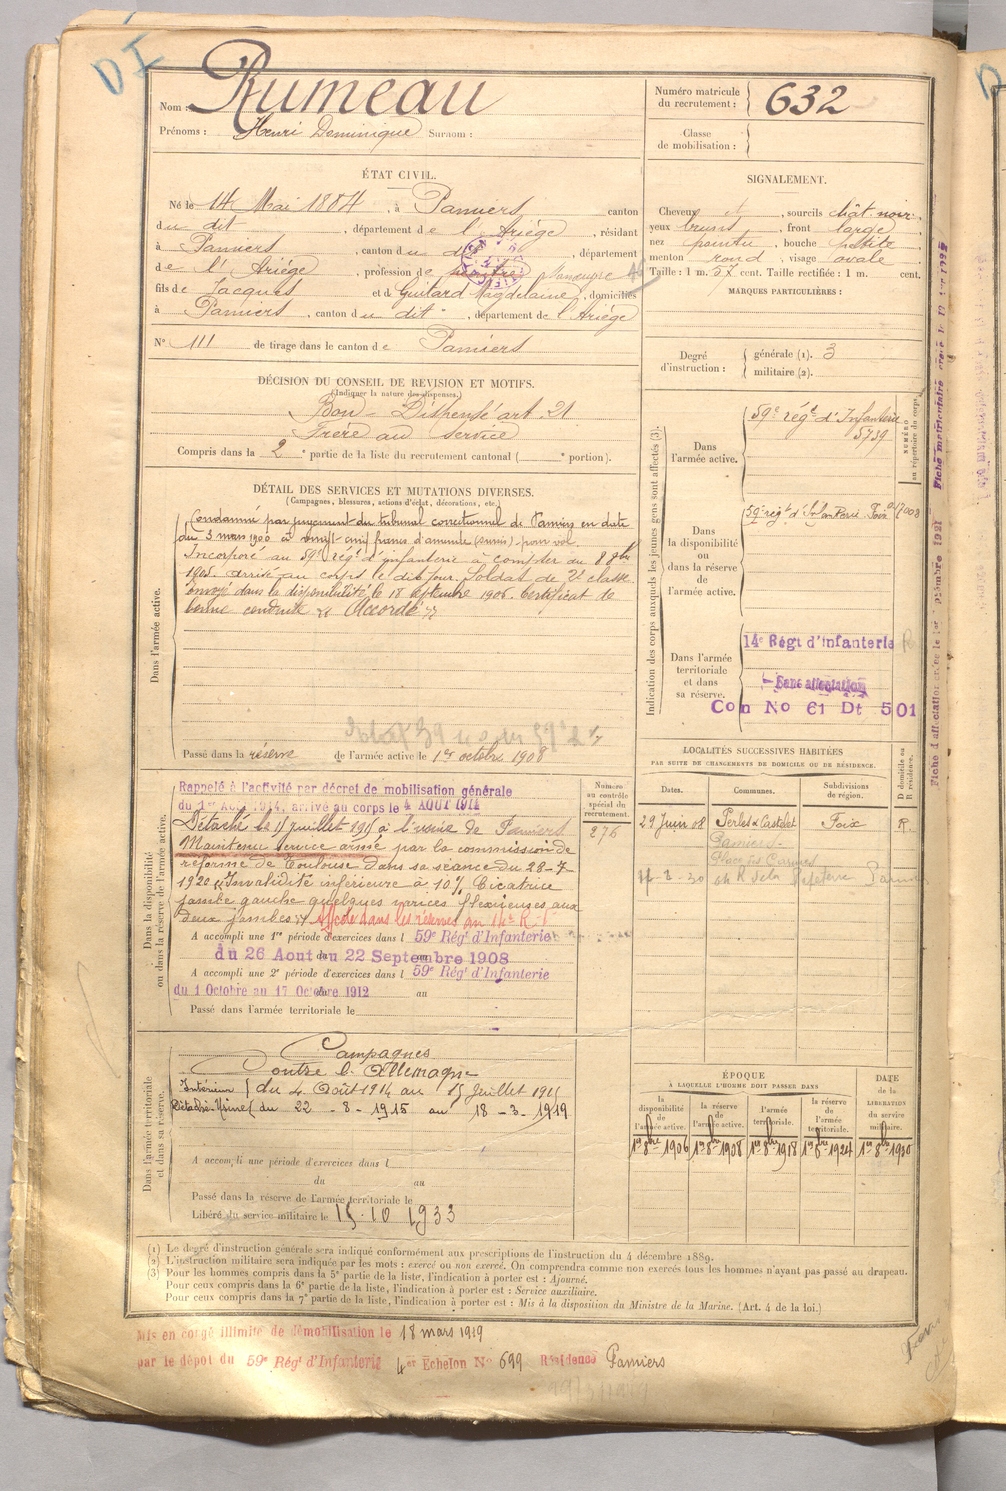 D I
Nom : Rumeau
Prénoms : Henri Dominique Surnom :
Numéro matricule du recrutement : 632
Classe de mobilisation :
ÉTAT CIVIL.
Né le 14 Mai 1884, à Pamiers canton
du dit, département de l'Ariège, résidant
à Pamiers, canton du dit, département
de l'Ariège, profession de peintre
fils de Jacques et de Guitard Magdelaine, domiciliés
à Pamiers, canton du dit, département de l'Ariège
N° 111 de tirage dans le canton de Pamiers
SIGNALEMENT.
Cheveux et, sourcils chât. noir,
yeux bruns, front large,
nez pointu, bouche petite,
menton rond, visage ovale
Taille : 1 m. 57 cent. Taille rectifiée : 1 m. cent.
MARQUES PARTICULIÈRES :
Degré d'instruction : générale (1). 3
militaire (2).
DÉCISION DU CONSEIL DE REVISION ET MOTIFS.
(Indiquer la nature des dispenses.)
Bon - Dispensé art. 21
Frère au service
Compris dans la 2e partie de la liste du recrutement cantonal ( e portion).
DÉTAIL DES SERVICES ET MUTATIONS DIVERSES.
(Campagnes, blessures, actions d'éclat, décorations, etc.)
Dans l'armée active.
Condamné par jugement du tribunal correctionnel de Pamiers en date
du 3 mars 1900 à vingt-cinq francs d'amende (sursis) pour vol.
Incorporé au 59e régt d'infanterie à compter du 8 8bre
1905. arrivé au corps le dit jour. Soldat de 2e classe
Envoyé dans la disponibilité le 18 septembre 1906. Certificat de
bonne conduite "Accordé"
Passé dans la réserve de l'armée active le 1er octobre 1908
Indication des corps auxquels les jeunes gens sont affectés (3).
Dans l'armée active.
59e régt d'Infanterie
5739
NUMÉRO au répertoire du corps.
Dans la disponibilité ou dans la réserve de l'armée active.
59e régt d'Infanterie Foix
Dans l'armée territoriale et dans sa réserve.
14e Régt d'infanterie
Sans affectation
Con No 61 Dt 501
Dans la disponibilité ou dans la réserve de l'armée active.
Rappelé à l'activité par décret de mobilisation générale
du 1er Août 1914, arrivé au corps le 4 AOUT 1914
Détaché le 15 juillet 1915 à l'usine de Pamiers
Maintenu service armé par la commission de
réforme de Toulouse dans sa séance du 28-7
1920 "Invalidité inférieure à 10% Cicatrice
jambe gauche quelques varices flexueuses aux
deux jambes"
A accompli une 1re période d'exercices dans l 59e Régt d'Infanterie
du 26 Aout au 22 Septembre 1908
A accompli une 2e période d'exercices dans l 59e Régt d'Infanterie
du 1 Octobre au 17 Octobre 1912 au
Passé dans l'armée territoriale le
Numéro au contrôle spécial du recrutement.
276
LOCALITÉS SUCCESSIVES HABITÉES
PAR SUITE DE CHANGEMENTS DE DOMICILE OU DE RÉSIDENCE.
Dates. Communes. Subdivisions de région. D domicile ou R résidence.
29 Juin 08 Perles & Castelet Foix R.
Pamiers
Place des Carmes
Dans l'armée territoriale et dans sa réserve.
Campagnes
Contre l'Allemagne
Intérieur du 4 Août 1914 au 15 Juillet 1915
Détaché Usine du 22 - 8 - 1915 au 18 - 3 - 1919
A accompli une période d'exercices dans l
du au
Passé dans la réserve de l'armée territoriale le
Libéré du service militaire le 15.10 1933
ÉPOQUE
A LAQUELLE L'HOMME DOIT PASSER DANS
DATE DE LA LIBERATION du service militaire.
la disponibilité de l'armée active. la réserve de l'armée active. l'armée territoriale. la réserve de l'armée territoriale.
1er 8bre 1906 1er 8bre 1908 1er 8bre 1918 1er 8bre 1924 1er 8bre 1930
(1) Le degré d'instruction générale sera indiqué conformément aux prescriptions de l'instruction du 4 décembre 1889.
(2) L'instruction militaire sera indiquée par les mots : exercé ou non exercé. On comprendra comme non exercés tous les hommes n'ayant pas passé au drapeau.
(3) Pour les hommes compris dans la 5e partie de la liste, l'indication à porter est : Ajourné.
Pour ceux compris dans la 6e partie de la liste, l'indication à porter est : Service auxiliaire.
Pour ceux compris dans la 7e partie de la liste, l'indication à porter est : Mis à la disposition du Ministre de la Marine. (Art. 4 de la loi.)
Mis en congé illimité de démobilisation le 18 mars 1919
par le dépôt du 59e Régt d'Infanterie 4er Echelon N° 699 Résidence Pamiers